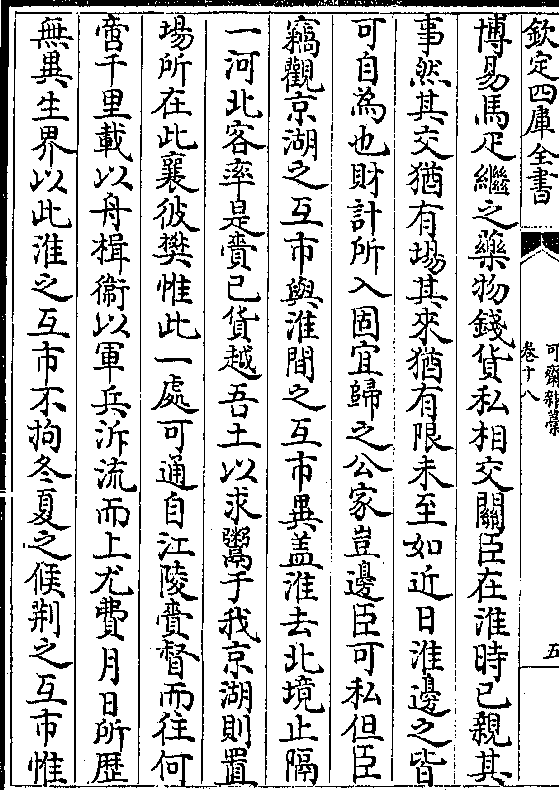 欽定四庫全書
可齋雜藁
卷十八
五
博易馬疋繼之藥物錢貨私相交關臣在淮時已親其
事然其交猶有場其來猶有限未至如近日淮邊之皆
可自為也財計所入固宜歸之公家豈邊臣可私但臣
竊觀京湖之互市與淮間之互市異盖淮去北境止隔
一河北客率是賫已貨越吾土以求鬻于我京湖則置
場所在此襄彼樊惟此一處可通自江陵賫督而往何
啻千里載以舟楫衞以軍兵泝流而上尤費月日所歴
無異生界以此淮之互市不拘冬夏之候荆之互市惟